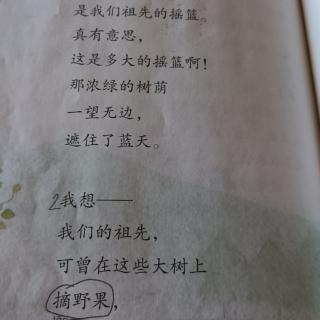 是我们祖先的摇篮。
真有意思，
这是多大的摇篮啊！
那浓绿的树荫
一望无边，
遮住了蓝天。
2我想——
我们的祖先，
可曾在这些大树上
摘野果，